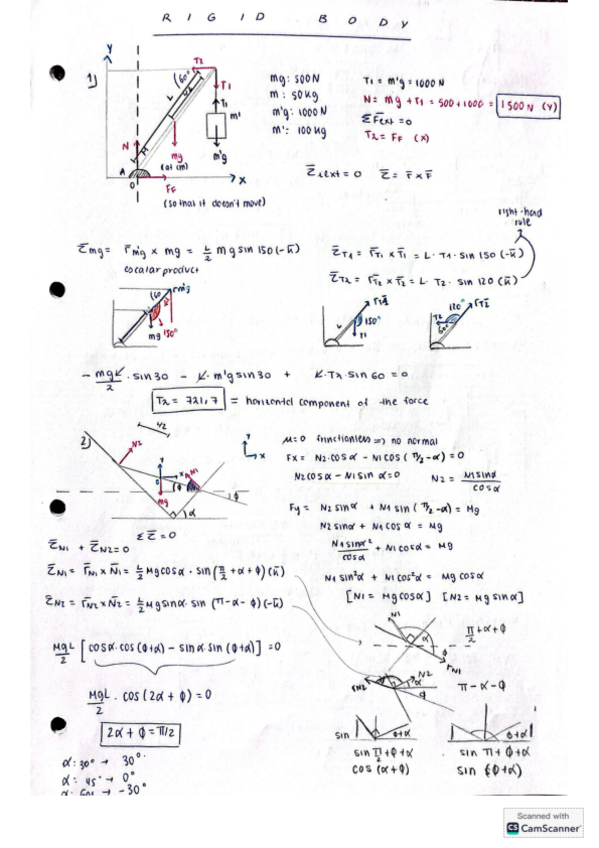 RIGID BODY
1)
Y
T2
60°
T1
L
m'
N
mg
(at cm)
m'g
A
O
FF
X
(so that it doesn't move)
mg: 500N
m: 50kg
m'g: 1000N
m': 100kg
T1 = m'g = 1000N
N = mg + T1 = 500 + 1000 = 1500N (Y)
ΣF̄ext = 0
T2 = FF (X)
τ̄ext = 0 τ̄ = r̄ x F̄
right-hand rule
τ̄mg = r̄mg x mg = L/2 mg sin 150 (-k̄)
escalar product
τ̄T1 = r̄T1 x T̄1 = L · T1 · sin 150 (-k̄)
τ̄T2 = r̄T2 x T̄2 = L · T2 · sin 120 (k̄)
160
rmg
mg
150°
L
150°
120°
T2
60°
- mgL/2 · sin 30 - L · m'g sin 30 + L · T2 · sin 60 = 0
T2 = 721,7 = horizontal component of the force
2)
L/2
N2
Y
X
N1
mg
ϕ
α
Y
X
μ=0 frinctionless => no normal
Fx = N2·cosα - N1 cos(π/2-α) = 0
N2cosα - N1 sinα = 0 N2 = N1sinα/cosα
Fy = N2 sinα + N1 sin(π/2-α) = Mg
N2 sinα + N1 cosα = Mg
N1 sinα²/cosα + N1 cosα = Mg
N1 sin²α + N1 cos²α = Mg cosα
[N1 = Mg cosα] [N2 = Mg sinα]
Στ̄ = 0
τ̄N1 + τ̄N2 = 0
τ̄N1 = r̄N1 x N̄1 = L/2 Mg cosα · sin(π/2+α+ϕ)(k̄)
τ̄N2 = r̄N2 x N̄2 = L/2 Mg sinα · sin(π-α-ϕ)(-k̄)
MgL/2 [cosα·cos(ϕ+α) - sinα·sin(ϕ+α)] = 0
MgL/2 · cos(2α+ϕ) = 0
2α + ϕ = π/2
α: 30° → 30°
α: 45° → 0°
α: 60° → -30°
N1
α
ϕ
rN1
π/2+α+ϕ
rN2
N2
α
π-α-ϕ
sin
ϕ+α
ϕ+α
sin π/2+ϕ+α
cos (α+ϕ)
sin π+ϕ+α
sin (ϕ+α)
Scanned with
CS CamScanner